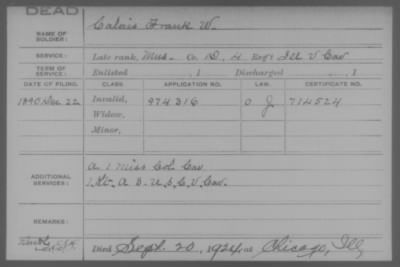 DEAD
NAME OF SOLDIER: Calais Frank W.
SERVICE: Late rank, Mus. Co. D, 4 Reg't Ill V Cav
TERM OF SERVICE: Enlisted , 1 Discharged , 1
DATE OF FILING. CLASS APPLICATION NO. LAW. CERTIFICATE NO.
1890 Dec 22 Invalid, 974316 O J 714524
Widow,
Minor,
ADDITIONAL SERVICES: A 1 Miss Col Cav
1 Lt. A 3. U.S.C.V. Cav.
REMARKS:
Died Sept 20, 1924 at Chicago, Ill